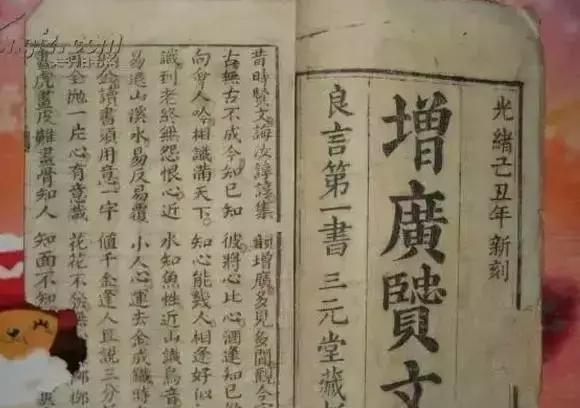 光緒己丑年新刻
增廣賢文
良言第一書 三元堂藏
昔時賢文誨汝諄諄集韻增廣多見多聞觀今
古無古不成今知己知彼將心比心酒逢知己
向會人吟相識滿天下知心能幾人相逢好似
識到老終無怨恨心近水知魚性近山識鳥音
易退山溪水易反易覆小人心運去金成鐵時
金讀書須用意一字値千金逢人且說三分
全抛一片心有意栽花花不發無
畫虎畫皮難畫骨知人知面不知